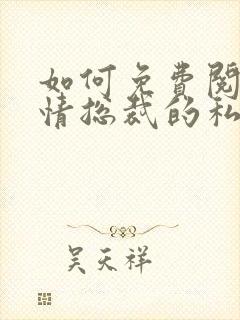 如何免費閱
情总裁的私
吴天祥